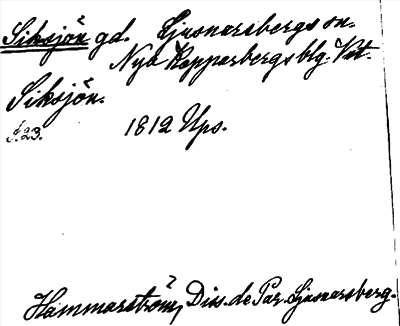 Siksjön gd. Ljusnarsbergs sn.
Nya Kopparbergs blg. Vstm.
Siksjön.
f. 23. 1812 Ups.
Hammarström, Diss. de Par. Ljusnarsberg.